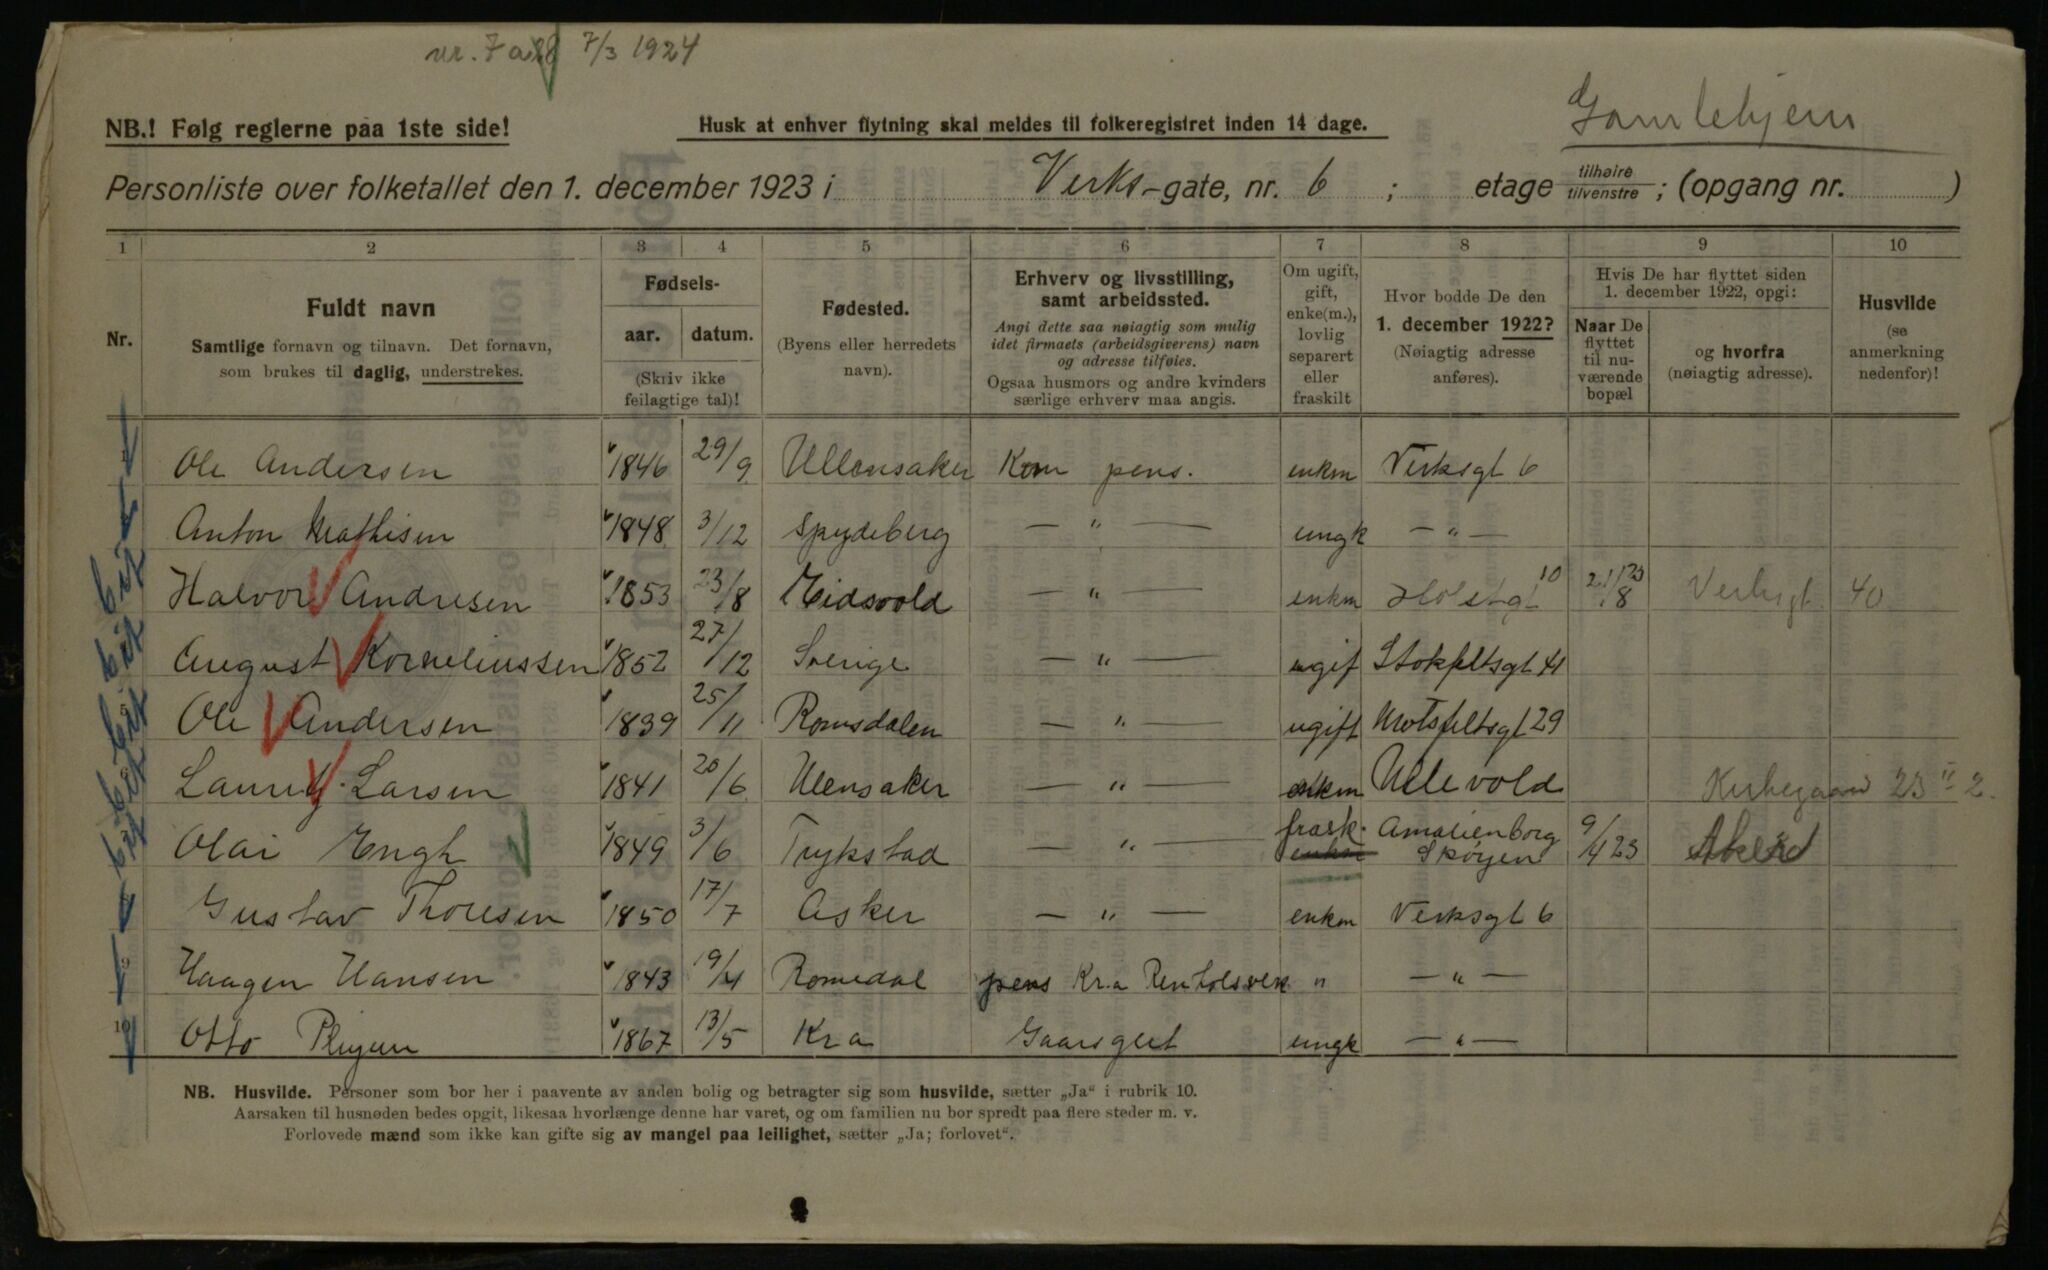 nr. 7 7/3 1924
Gamlehjem
NB.! Følg reglerne paa 1ste side!
Husk at enhver flytning skal meldes til folkeregistret inden 14 dage.
Personliste over folketallet den 1. december 1923 i Verks-gate, nr. 6 ; etage tilhøire tilvenstre ; (opgang nr. )
1 2 3 4 5 6 7 8 9 10
Nr.
Fuldt navn
Samtlige fornavn og tilnavn. Det fornavn,
som brukes til daglig, understrekes.
Fødsels-
aar. datum.
(Skriv ikke
feilagtige tal)!
Fødested.
(Byens eller herredets
navn).
Erhverv og livsstilling,
samt arbeidssted.
Angi dette saa nøiagtig som mulig
idet firmaets (arbeidsgiverens) navn
og adresse tilføies.
Ogsaa husmors og andre kvinders
særlige erhverv maa angis.
Om ugift,
gift,
enke(m.),
lovlig
separert
eller
fraskilt
Hvor bodde De den
1. december 1922?
(Nøiagtig adresse
anføres).
Hvis De har flyttet siden
1. december 1922, opgi:
Naar De
flyttet
til nu-
værende
bopæl
og hvorfra
(nøiagtig adresse).
Husvilde
(se
anmerkning
nedenfor)!
Ole Andersen 1846 29/9 Ullensaker Kom pens. enkm Verksgt 6
Anton Mathisen 1848 3/12 Spydeberg — " — ungk — " —
Halvor Andresen 1853 23/8 Eidsvold — " — enkm Holstgt 10 21/8 23 Verksgt 40
August Korneliussen 1852 27/12 Sverige — " — ugif Stokfeltsgt 41
5 Ole Andersen 1839 25/11 Romsdalen — " — ugift Motsfeltsgt 29
Lauritz Larsen 1841 20/6 Ulensaker — " — enkm Ullevold Kirkegaard 23 II 2.
Olai Engh 1849 3/6 Trykstad — " — frask. enkm Amalienborg Skøyen 9/4 23 Aker
Gustav Thoresen 1850 17/7 Asker — " — enkm Verksgt 6
9 Haagen Hansen 1843 19/4 Romedal pens Kr.a Renholsverk " — " —
10 Otto 1867 13/5 Kra Gaarsgut ungk — " —
NB. Husvilde. Personer som bor her i paavente av anden bolig og betragter sig som husvilde, sætter „Ja“ i rubrik 10.
Aarsaken til husnøden bedes opgit, likesaa hvorlænge denne har varet, og om familien nu bor spredt paa flere steder m. v.
Forlovede mænd som ikke kan gifte sig av mangel paa leilighet, sætter „Ja; forlovet“.